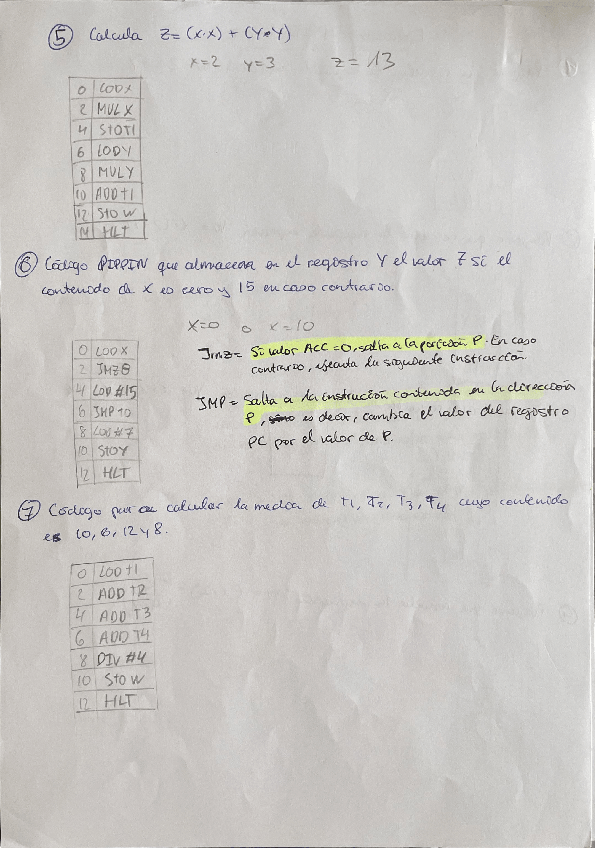 5 Calcula Z=(X·X) + (Y·Y)
x=2 y=3 z=13
0 LOD X
2 MUL X
4 STO T1
6 LOD Y
8 MUL Y
10 ADD T1
12 STO W
14 HLT
6 Código PIPPIN que almacena en el registro Y el valor 7 si el
contenido de X es cero y 15 en caso contrario.
X=0 o X=10
0 LOD X
2 JMZ 8
4 LOD #15
6 JMP 10
8 LOD #7
10 STO Y
12 HLT
JMZ = Si valor ACC=0, salta a la porción P. En caso
contrario, ejecuta la siguiente instrucción.
JMP = Salta a la instrucción contenida en la dirección
P, es decir, cambia el valor del registro
PC por el valor de P.
7 Código para calcular la media de T1, T2, T3, T4 cuyo contenido
es 10, 6, 12 y 8.
0 LOD T1
2 ADD T2
4 ADD T3
6 ADD T4
8 DIV #4
10 STO W
12 HLT